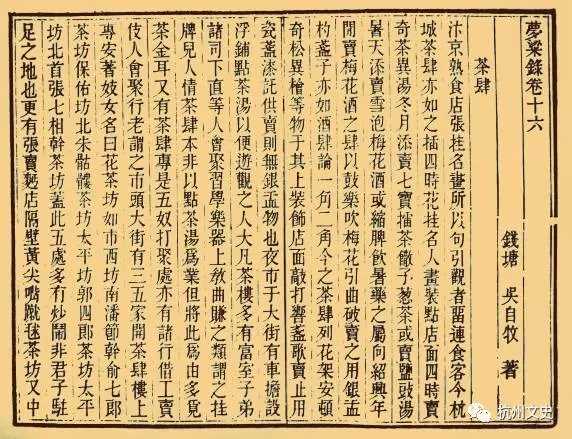 夢粱錄卷十六
錢塘 吳自牧 著
茶肆
汴京熟食店張挂名畫所以勾引觀者留連食客今杭
城茶肆亦如之插四時花挂名人畫裝點店面四時賣
奇茶異湯冬月添賣七寶擂茶饊子葱茶或賣鹽豉湯
暑天添賣雪泡梅花酒或縮脾飲暑藥之屬向紹興年
間賣梅花酒之肆以鼓樂吹梅花引曲破賣之用銀盂
杓盞子亦如酒肆論一角二角今之茶肆列花架安頓
奇松異檜等物于其上裝飾店面敲打響盞歌賣止用
瓷盞漆託供賣則無銀盂物也夜市于大街有車擔設
浮鋪點茶湯以便遊觀之人大凡茶樓多有富室子弟
諸司下直等人會聚習學樂器上敎曲賺之類謂之挂
牌兒人情茶肆本非以點茶湯為業但將此為由多覓
茶金耳又有茶肆專是五奴打聚處亦有諸行借工賣
伎人會聚行老謂之市頭大街有三五家開茶肆樓上
專安著妓女名曰花茶坊如市西坊南潘節幹俞七郎
茶坊保佑坊北朱骷髏茶坊太平坊郭四郎茶坊太平
坊北首張七相幹茶坊蓋此五處多有炒鬧非君子駐
足之地也更有張賣麪店隔壁黃尖嘴蹴毬茶坊又中
杭州文史